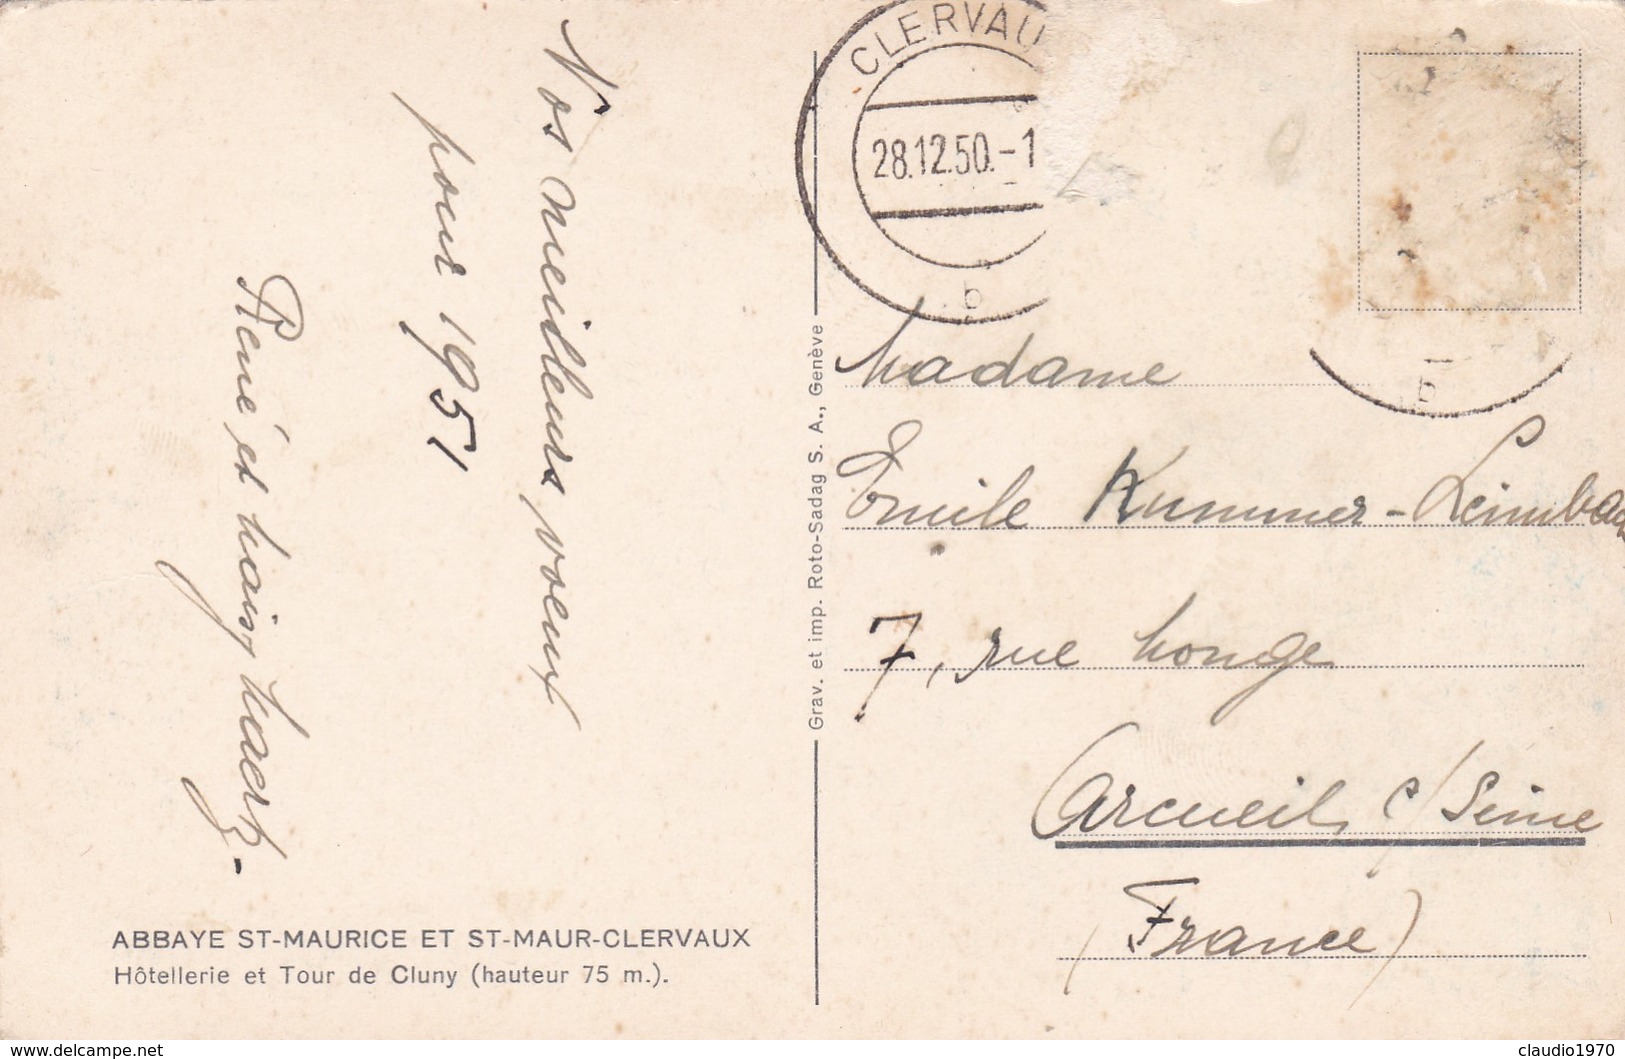 Nos meilleurs voeux
pour 1951
René et
ABBAYE ST-MAURICE ET ST-MAUR-CLERVAUX
Hôtellerie et Tour de Cluny (hauteur 75 m.).
Grav. et imp. Roto-Sadag S. A., Genève
CLERVAU
28.12.50.-1
b
b
Madame
Emile Kummer-Leimbach
7, rue
Arcueil s/Seine
(France)
www.delcampe.net
claudio1970